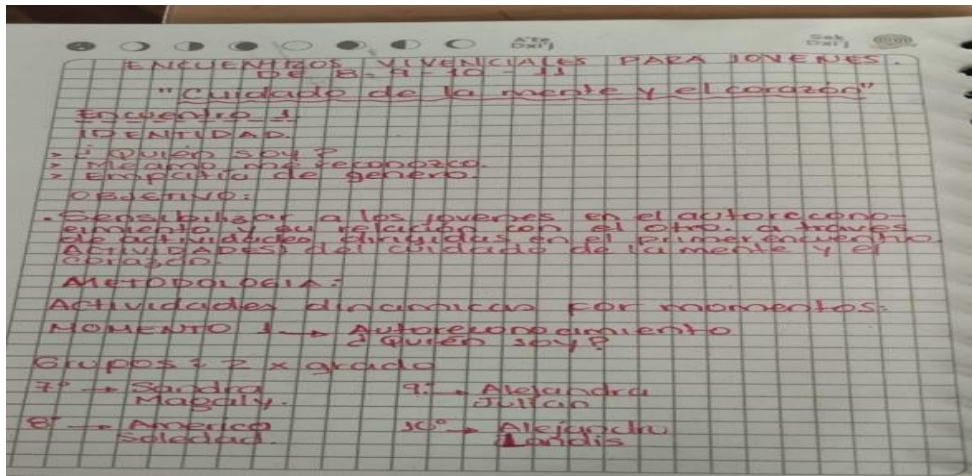 A'te Dxi'j
Sek Dxi'j
ENCUENTROS VIVENCIALES PARA JOVENES.
DE 8-9-10-11
"Cuidado de la mente y el corazón"
Encuentro 1
IDENTIDAD.
> ¿Quién soy?
> Me amo me reconozco.
> Empatía de genero.
OBJETIVO:
• Sensibilizar a los jovenes en el autorecono-
cimiento y su relación con el otro. a través
de actividades dirigidas en el primer encuentro
del cuidado de la mente y el
corazón.
METODOLOGIA:
Actividades dinamicas por momentos:
MOMENTO 1 → Autoreconocimiento
¿Quién soy?
Grupos: 2 x grado
7° → Sandra Magaly.
9° → Alejandra Julian
8° → America Soledad.
10° → Alejandra Landis